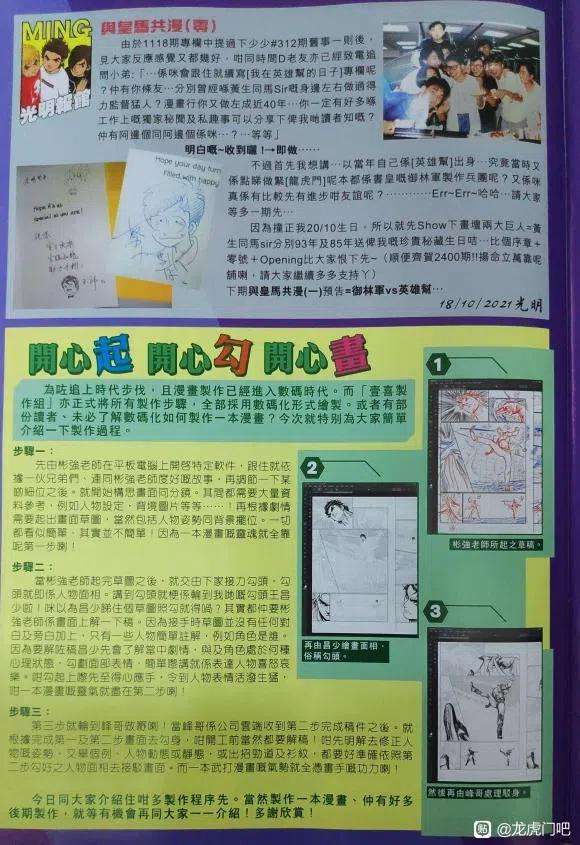 MING
光明報館
與皇馬共漫(零)
由於1118期專欄中提過下少少#312期舊事一則後，
見大家反應感覺又都幾好，咁同時間D老友亦已經致電追
問小弟:「…係咪會跟住就續寫[我在英雄幫的日子]專欄呢
？仲有你條友…分別曾經喺黃生同馬Sir嘅身邊左右做過得
力監督猛人？漫畫行你又做左成近40年…你一定有好多喺
工作上嘅獨家秘聞及私趣事可以分享下俾我哋讀者知嘅？
仲有阿邊個同阿邊個係咪…？…等等」
明白嘅~收到曬!→即做……
不過首先我想講…以當年自己係[英雄幫]出身…究竟當時又
係點睇做緊[龍虎門]呢本都係書皇嘅御林軍製作兵團呢？又係咪
真係有比較先有進步咁友誼呢？…………Err~Err~哈哈…請大家
等多一期先…
因為撞正我20/10生日，所以就先Show下畫壇兩大巨人=黃
生同馬sir分別93年及85年送俾我嘅珍貴秘藏生日咭…比個序章+
零號+Opening比大家恨下先~（順便齊賀2400期!!揚命立萬靠呢
舖喇，請大家繼續多多支持丫）
下期與皇馬共漫(一)預告=御林軍vs英雄幫…
18/10/2021光明
Hope your day turn
Filled with happy
Hope it's as
special as you are!
開心起 開心勾 開心畫
為咗追上時代步伐，且漫畫製作已經進入數碼時代。而「壹喜製
作組」亦正式將所有製作步驟，全部採用數碼化形式繪製。或者有部
份讀者、未必了解數碼化如何製作一本漫畫？今次就特別為大家簡單
介紹一下製作過程。
步驟一：
先由彬強老師在平板電腦上開啓特定軟件，跟住就依
據一伙兄弟們，連同彬強老師度好嘅故事，再調節一下某
啲細位之後。就開始構思畫面同分鏡。其間都需要大量資
料參考，例如人物設定，背境圖片等等……！再根據劇情
需要起出畫面草圖，當然包括人物姿勢同背景擺位。一切
都看似簡單、其實並不簡單！因為一本漫畫嘅靈魂就全靠
呢第一步喇！
步驟二：
當彬強老師起完草圖之後，就交由下家接力勾頭，勾
頭就即係人物面相。講到勾頭就梗係輪到我哋嘅勾頭王昌
少啦！咪以為昌少睇住個草圖照勾就得喎？其實都仲要彬
強老師係畫面上解一下稿。因為接手時草圖並沒有任何對
白及旁白加上，只有一些人物簡單註解，例如角色是誰。
因為要解咗稿昌少先會了解當中劇情，與及角色處於何種
心理狀態，勾劃面部表情，簡單嚟講就係表達人物喜怒哀
樂。咁勾起上嚟先至得心應手，令到人物表情活潑生猛，
咁一本漫畫嘅靈氣就盡在第二步喇！
步驟三：
第三步就輪到峰哥做嘢喇！當峰哥係公司雲端收到第二步完成稿件之後。就
根據完成第一及第二步畫面去勾身，咁開工前當然都要解稿！咁先明解去修正人
物嘅姿勢，又舉個例、人物動態或靜態，或出招勁道及衫紋，都要好準確依照第
二步勾好之人物面相去接駁畫面。而一本武打漫畫嘅氣勢就全憑畫手嘅功力喇！
今日同大家介紹住咁多製作程序先。當然製作一本漫畫、仲有好多
後期製作，就等有機會再同大家一一介紹！多謝欣賞！
1
彬強老師所起之草稿。
2
再由昌少繪畫面相，
俗稱勾頭。
3
然後再由峰哥處理駁身。
貼 @龙虎门吧